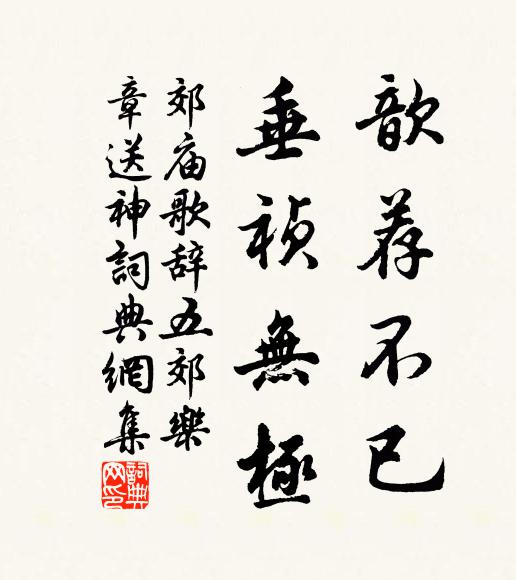 歆荐不已
垂祯無極
郊庙歌辞五郊樂
章送神詞典網集
詞典网印